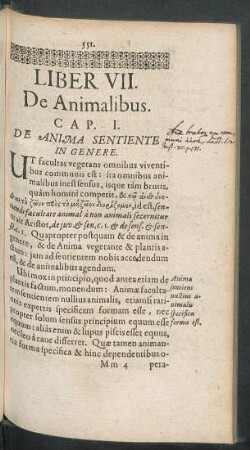 551.
LIBER VII.
De Animalibus.
CAP. I.
DE ANIMA SENTIENTE
IN GENERE.
UT facultas vegetans omnibus viventi-
bus communis est: ita omnibus ani-
malibus inest sensus, isque tàm brutis,
quàm homini competit, &
id est, sen-
tiendi facultate animal à non animali secernitur
ut ait Aristot, de juv. & sen. c. 1. & de sens. & sen-
c. 1. Quapropter postquam & de anima in
genere, & de Anima vegetante & plantis a-
ctum: jam ad sentientem nobis accedendum
est, & de animalibus agendum.
Ubi mox in principio, quod antea etiam de
plantis factum, monendum: Animæ faculta-
tem sentientem nullius animalis, etiamsi rati-
onis expertis specificam formam esse, nec
propter solum sensus principium equum esse
equum: aliàs enim & lupus piscis esset equus,
cum & ille sentiat. Quæ tamen animan-
tia forma specifica & hinc dependentibus o-
Anima
sentiens
nullius a-
nimalis
specifica
forma est.
Mm 4 pera-